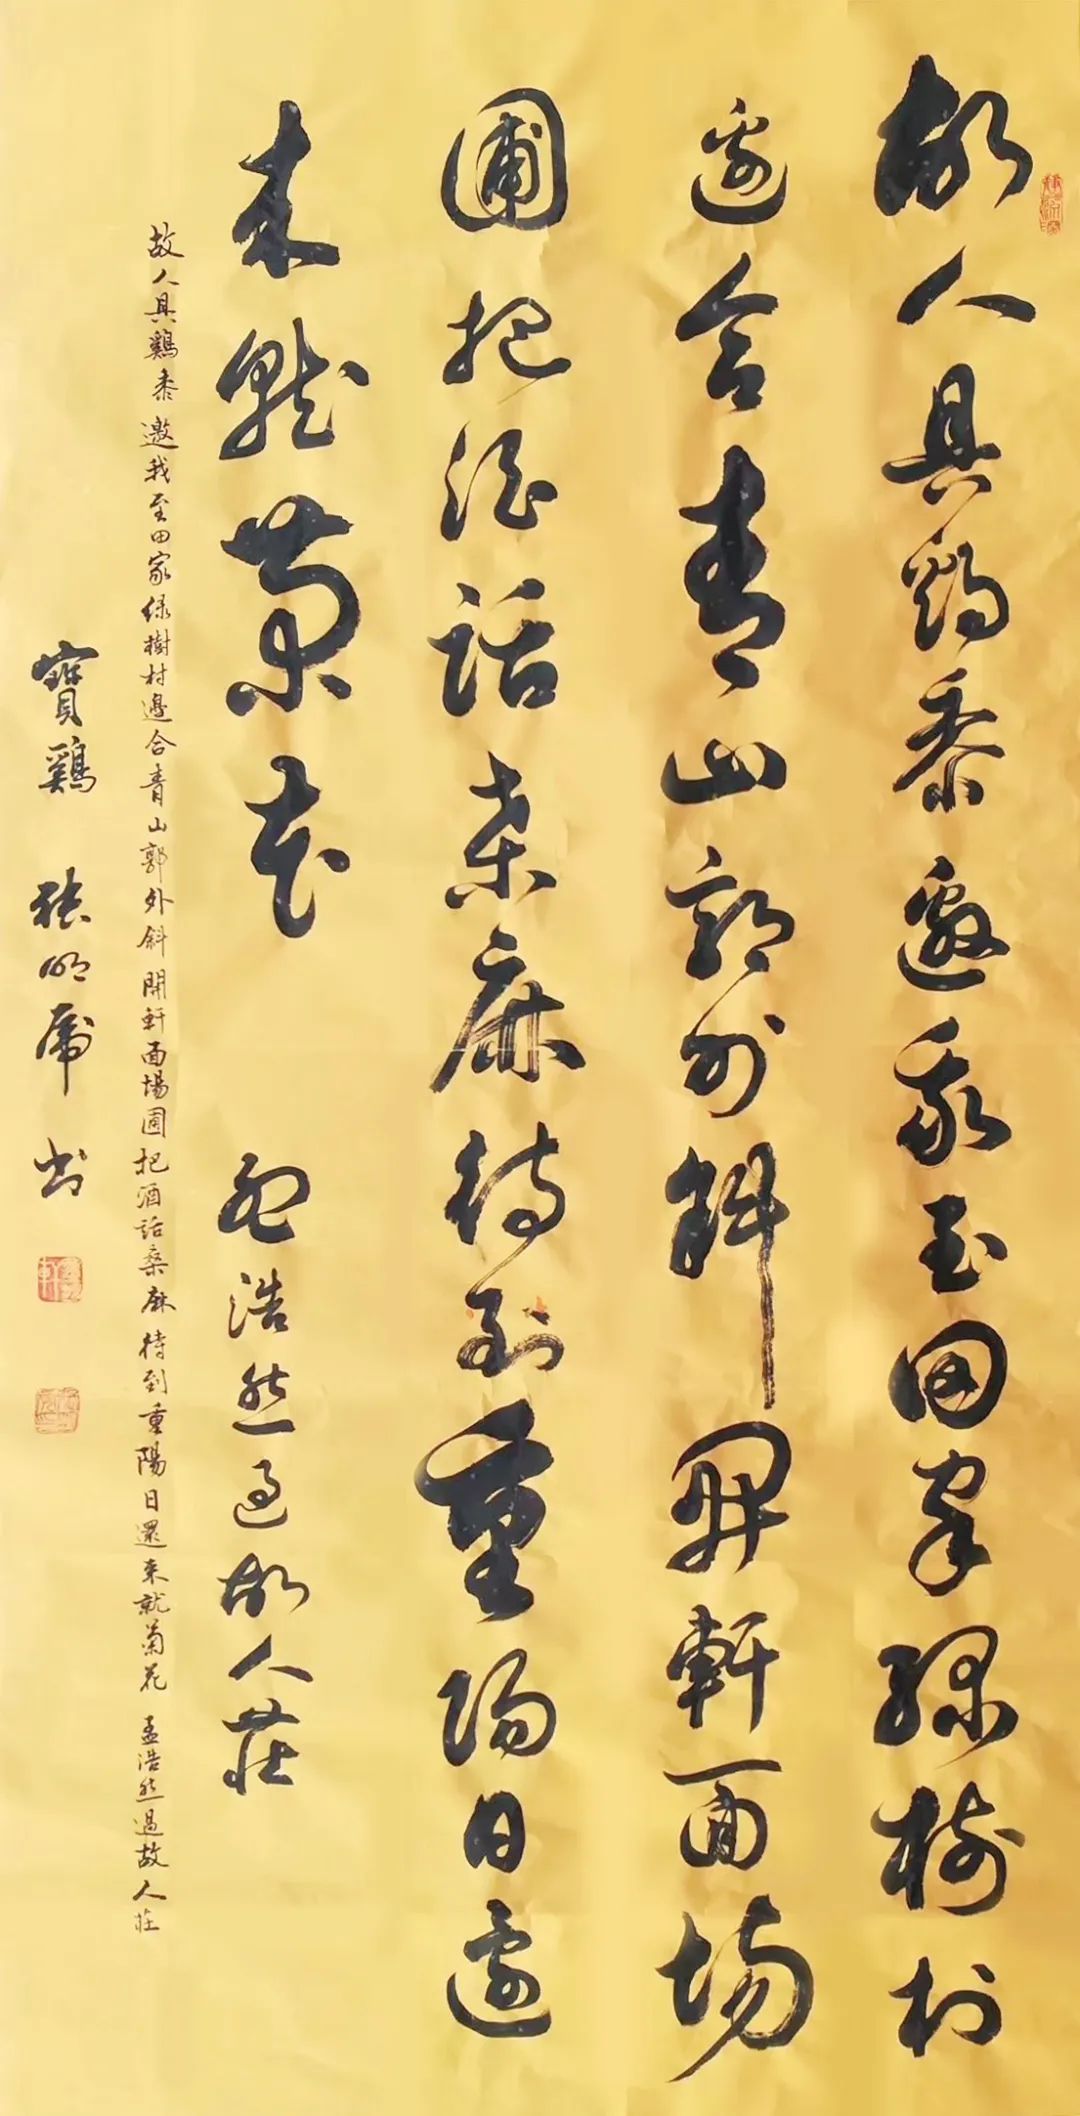 故人具鷄黍邀我至田家綠樹村
邊合青山郭外斜開軒面場
圃把酒話桑麻待到重陽日還
来就菊花
孟浩然過故人莊
故人具鷄黍邀我至田家绿樹村邊合青山郭外斜開軒面場圃把酒話桑麻待到重陽日還来就菊花 孟浩然過故人莊
寶鷄 張明虎 书